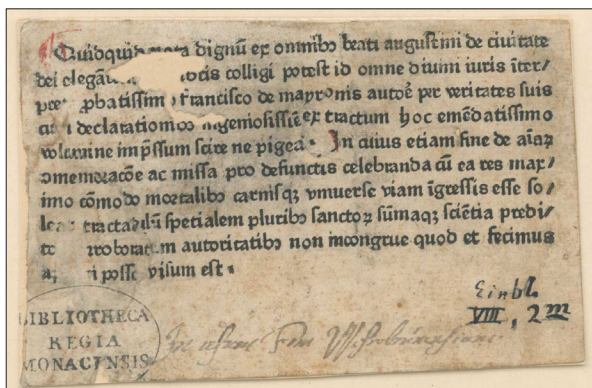 Quidquid nota dignū ex omnibꝰ beati augustini de ciuitate
dei elegāti libris colligi potest id omne diuini iuris īter/
ꝓbatissimo francisco de mayronis autoꝛē per veritates suis
declarationibꝰ ingeniosissīe extractum hoc emēdatissimo
volumine imp̄ssum scire ne pigeat. In cuius etiam fine de aīaꝝ
ↄmemoracōe ac missa pro defunctis celebranda cū ea res max/
imo cōmodo mortalibꝰ carnisqꝫ vniuerse viam īgressis esse so/
tractatulū specialem pluribꝰ sanctoꝝ sūmaqꝫ sciētia predi/
autoritatibꝰ non incongrue quod et fecimus
posse visum est.
Einbl.
VIII, 2 m
BIBLIOTHECA
REGIA
MONACENSIS